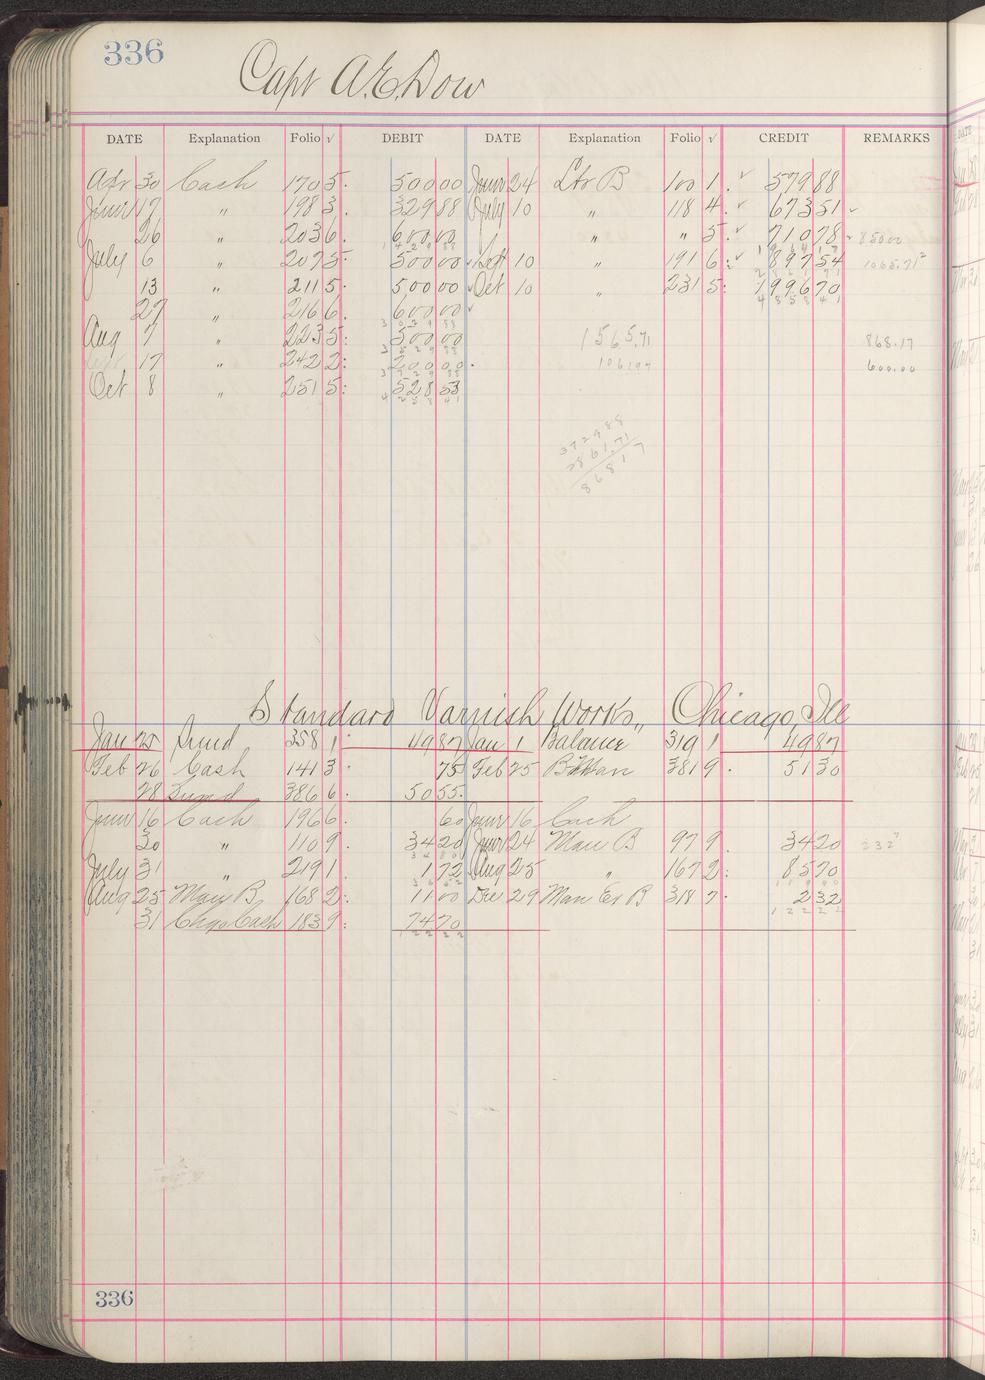 336
Capt A. E. Dow
DATE Explanation Folio √ DEBIT DATE Explanation Folio √ CREDIT REMARKS
Apr 30 Cash 170 5 500 00 June 24 Lbr B 100 1 579 88
June 17 " 198 3 329 88 July 10 " 118 4 673 51
26 " 203 6 600 00 " " 5 710 78 850.00
July 6 " 207 5 500 00 Sept 10 " 191 6 897 54 1065.71
13 " 211 5 500 00 Oct 10 " 231 5 1996 70
27 " 216 6 600 00
Aug 7 " 223 5 500 00 1565.71 868.17
17 " 242 2 200 00 1061 97 600.00
Oct 8 " 251 5 528 53
3729 88
2861.71
868 17
Standard Varnish Works,, Chicago, Ill
Jan 25 Sund 358 1 49 87 Jan 1 Balance 319 1 49 87
Feb 26 Cash 141 3 75 Feb 25 381 9 51 30
28 Sund 386 6 50 55
June 16 Cash 196 6 60 June 16 Cash
30 " 110 9 34 20 June 24 Man B 97 9 34 20 232
July 31 " 219 1 1 72 Aug 25 " 167 2 85 70
Aug 25 Man B 168 2 11 00 Dec 29 Man Ex B 318 7 2 32
31 Chgo Cash 183 9 74 70
336